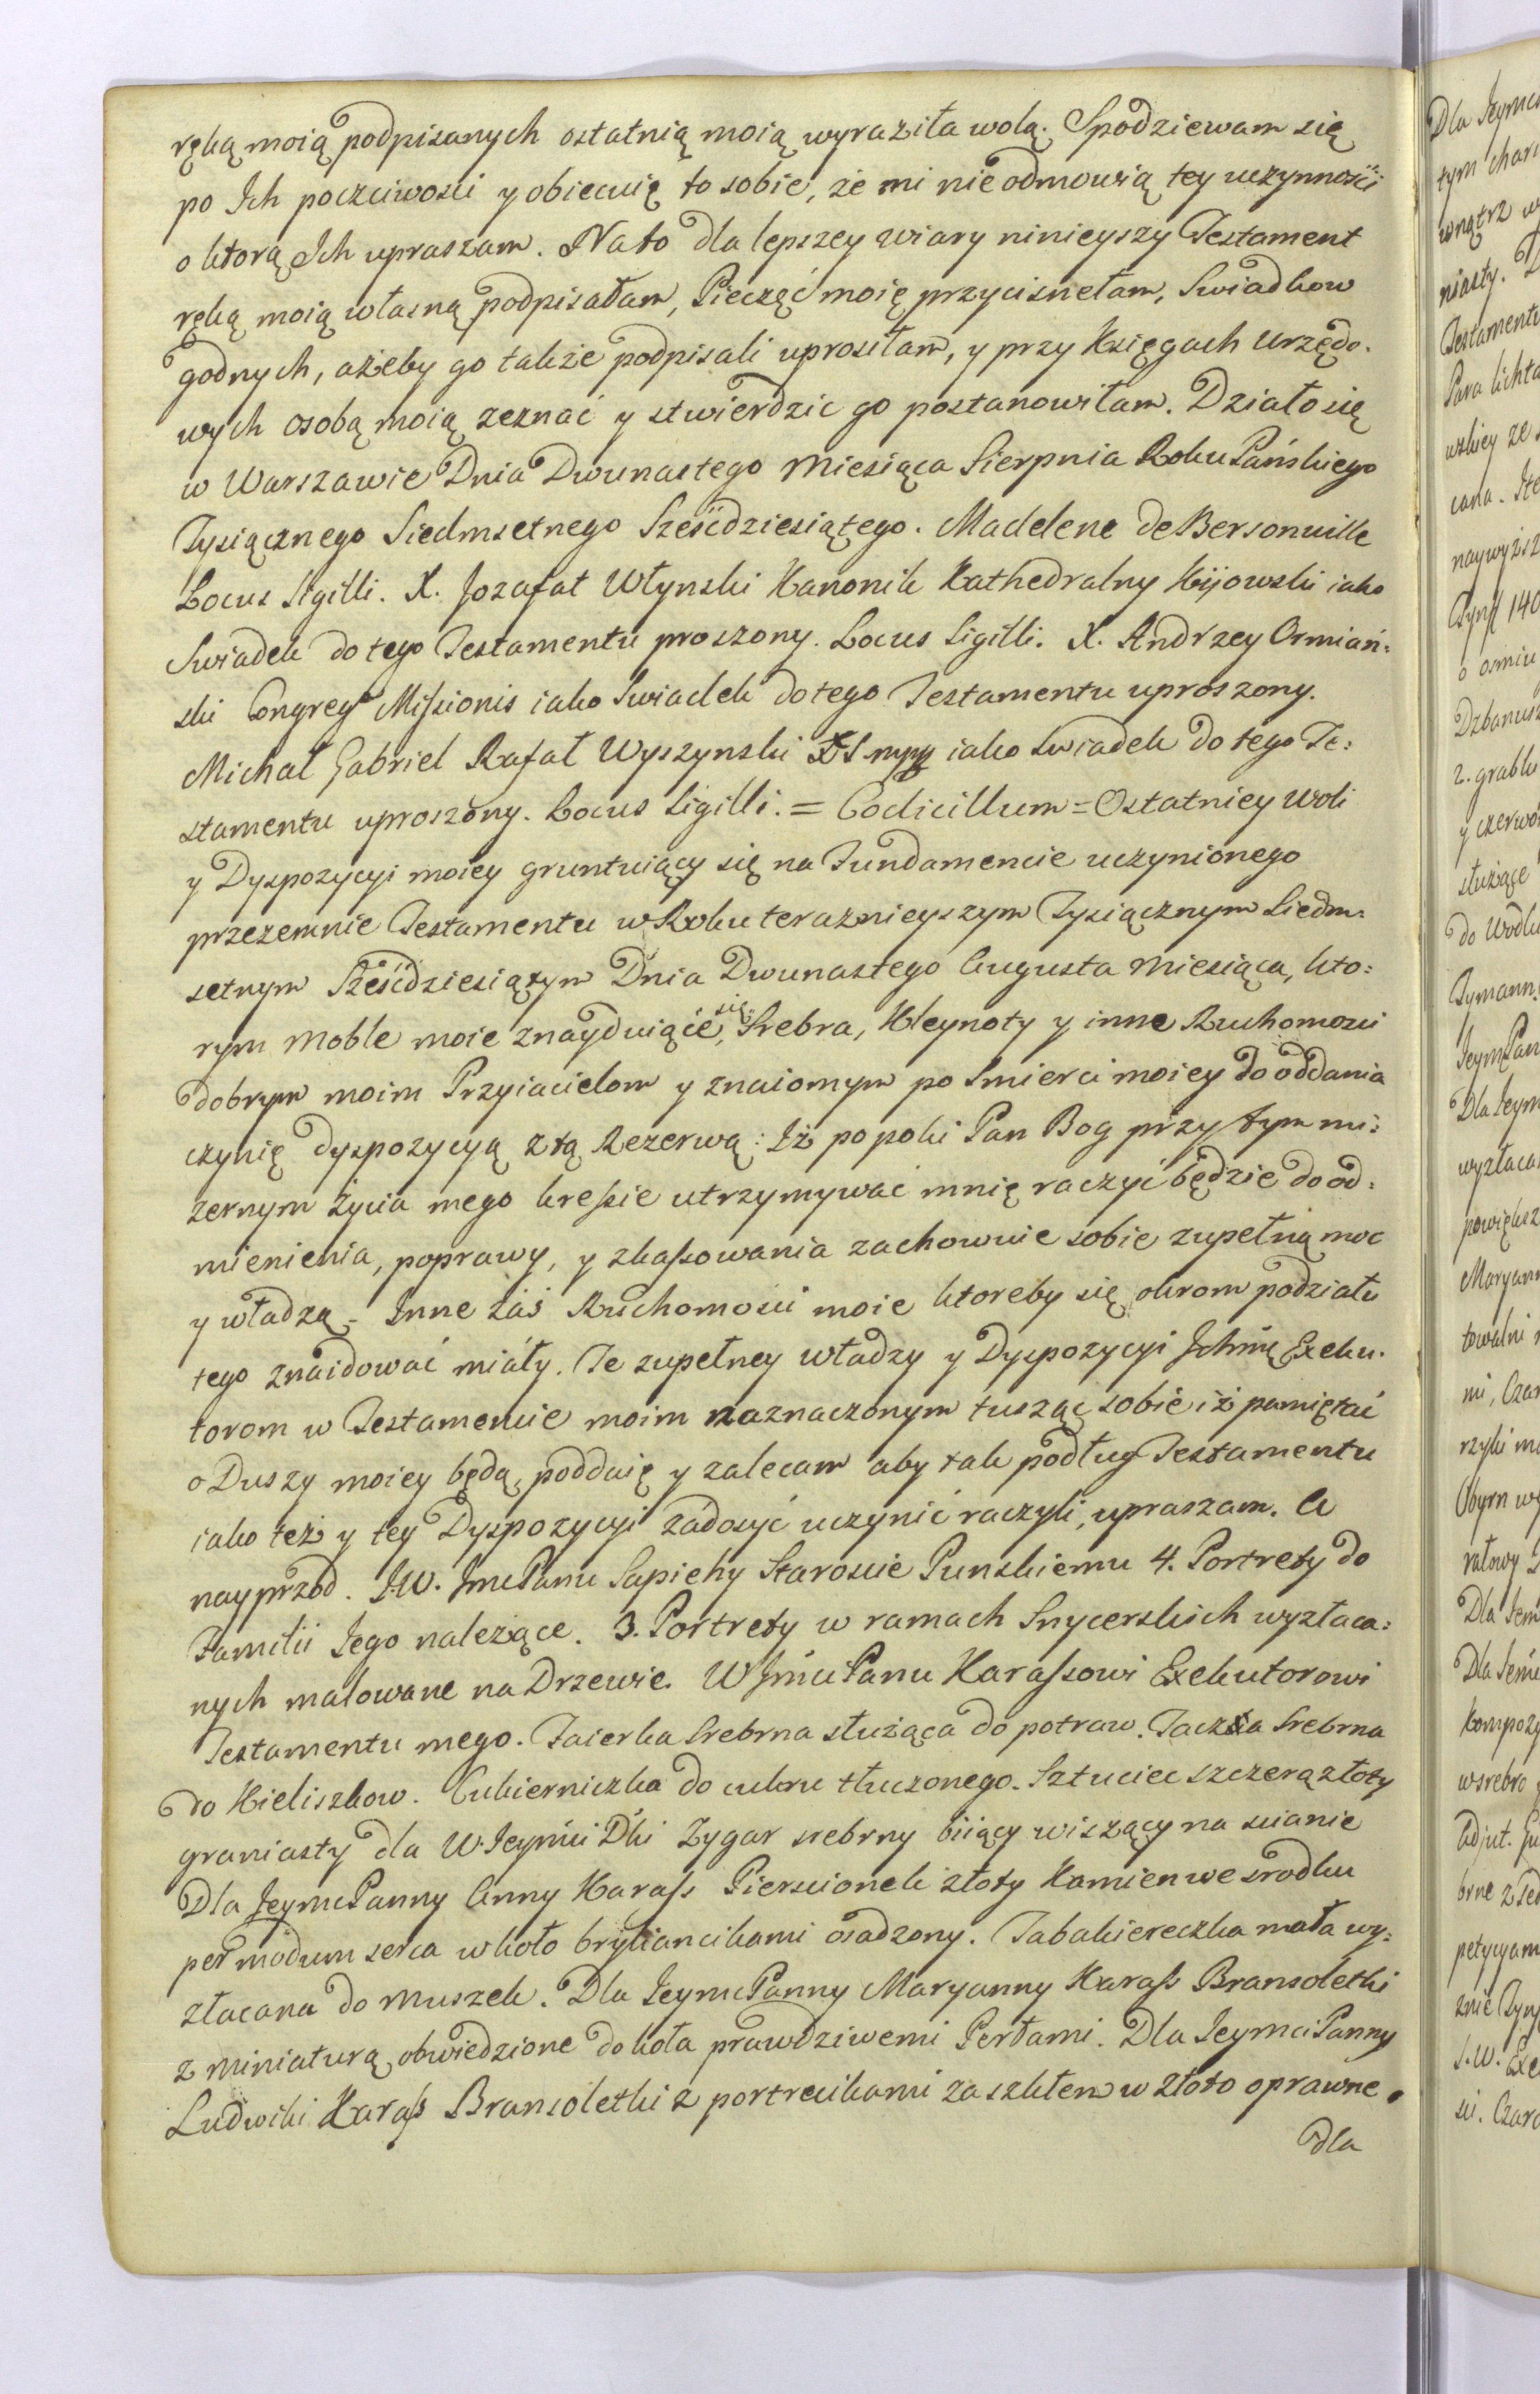 ręką moią podpisanych ostatnią moią wyraziła wolą. Spodziewam się
po Ich poczciwosci y obiecuię to sobie, że mi nie odmowią tey uczynności
o ktorą Ich upraszam. Na to dla lepszey wiary ninieyszy Testament
ręką moią własną podpisałam, Pieczęć moię przycisnełam, Swiadkow
godnych, ażeby go także podpisali uprosiłam, y przy Księgach Urzędo-
wych osobą moią zeznać y stwierdzic go postanowiłam. Działo się
w Warszawie Dnia Dwunastego Miesiąca Sierpnia Roku Pańskiego
Tysiącznego Siedmsetnego Sześćdziesiątego. Madelene de Bersonville
Locus Sigilli. X. Jozafat Włynski Kanonik Kathedralny Kijowski iako
Swiadek do tego Testamentu proszony. Locus Sigilli. X. Andrzey Ormiań:
ski Congreg Missionis iako Swiadek do tego Testamentu uproszony.
Michał Gabriel Rafał Wyszynski iako Swiadek do tego Te:
stamentu uproszony. Locus Sigilli. = Codicillum = Ostatniey Woli
y Dyspozycyi moiey gruntuiący się na Fundamencie uczynionego
przezemnie Testamentu w Roku terazniejszym Tysiącznym Siedm:
setnym Sześćdziesiątym Dnia Dwunastego Augusta Miesiąca, kto:
rym Moble moie znayduiące się, Srebra, Kleynoty y inne Ruchomosci
dobrym moim Przyiacielom y znaiomym po Smierci moiey do oddania
czynię dyspozycyą z tą Rezerwą: Iż popoki Pan Bog przy tym mi:
zernym życia mego kreßie utrzymywać mnię raczyć będzie do od:
mienienia, poprawy, y skaßowania zachowuie sobie zupełną moc
y władzą - Inne zaś Ruchomosci moie ktoreby się okrom podziału
tego znaidować miały. Te zupełney władzy y Dyspozycyi Ichmć Exeku-
torom w Testamencie moim naznaczonym tusząc sobie iż pamiętać
o Duszy moiey będą, poddaię y zalecam aby tak podług Testamentu
iako też y tey Dyspozycyi zadosyć uczynić raczyli, upraszam. A
nayprzod. J.W. Jmc Panu Sapiehy Staroscie Punskiemu 4. Portrety do
Familii Jego należące. 3. Portrety w ramach Snycerskich wyzłaca:
nych malowane na Drzewie. W Jmci Panu Karaßowi Exekutorowi
Testamentu mego. Faierka Srebrna służąca do potraw. Taczka Srebrna
do Kieliszkow. Cukierniczka do cukru tłuczonego. Sztuciec szczerązłoty
graniasty dla W. Jeymci Dki Zygar srebrny biiący wiszący na scianie
Dla Jeymc Panny Anny Karaß Pierscionek złoty Kamien we srodku
per modum serca wkoło brylancikami osadzony. Tabakiereczka mała wy:
złacana do Muszek. Dla Jeymc Panny Maryanny Karaß Bransoletki
z Miniaturą obwiedzione dokoła prawdziwemi Perłami. Dla Jeymci Panny
Ludwiki Karaß Bransoletki z portrecikami za szkłem w złoto oprawne.
dla